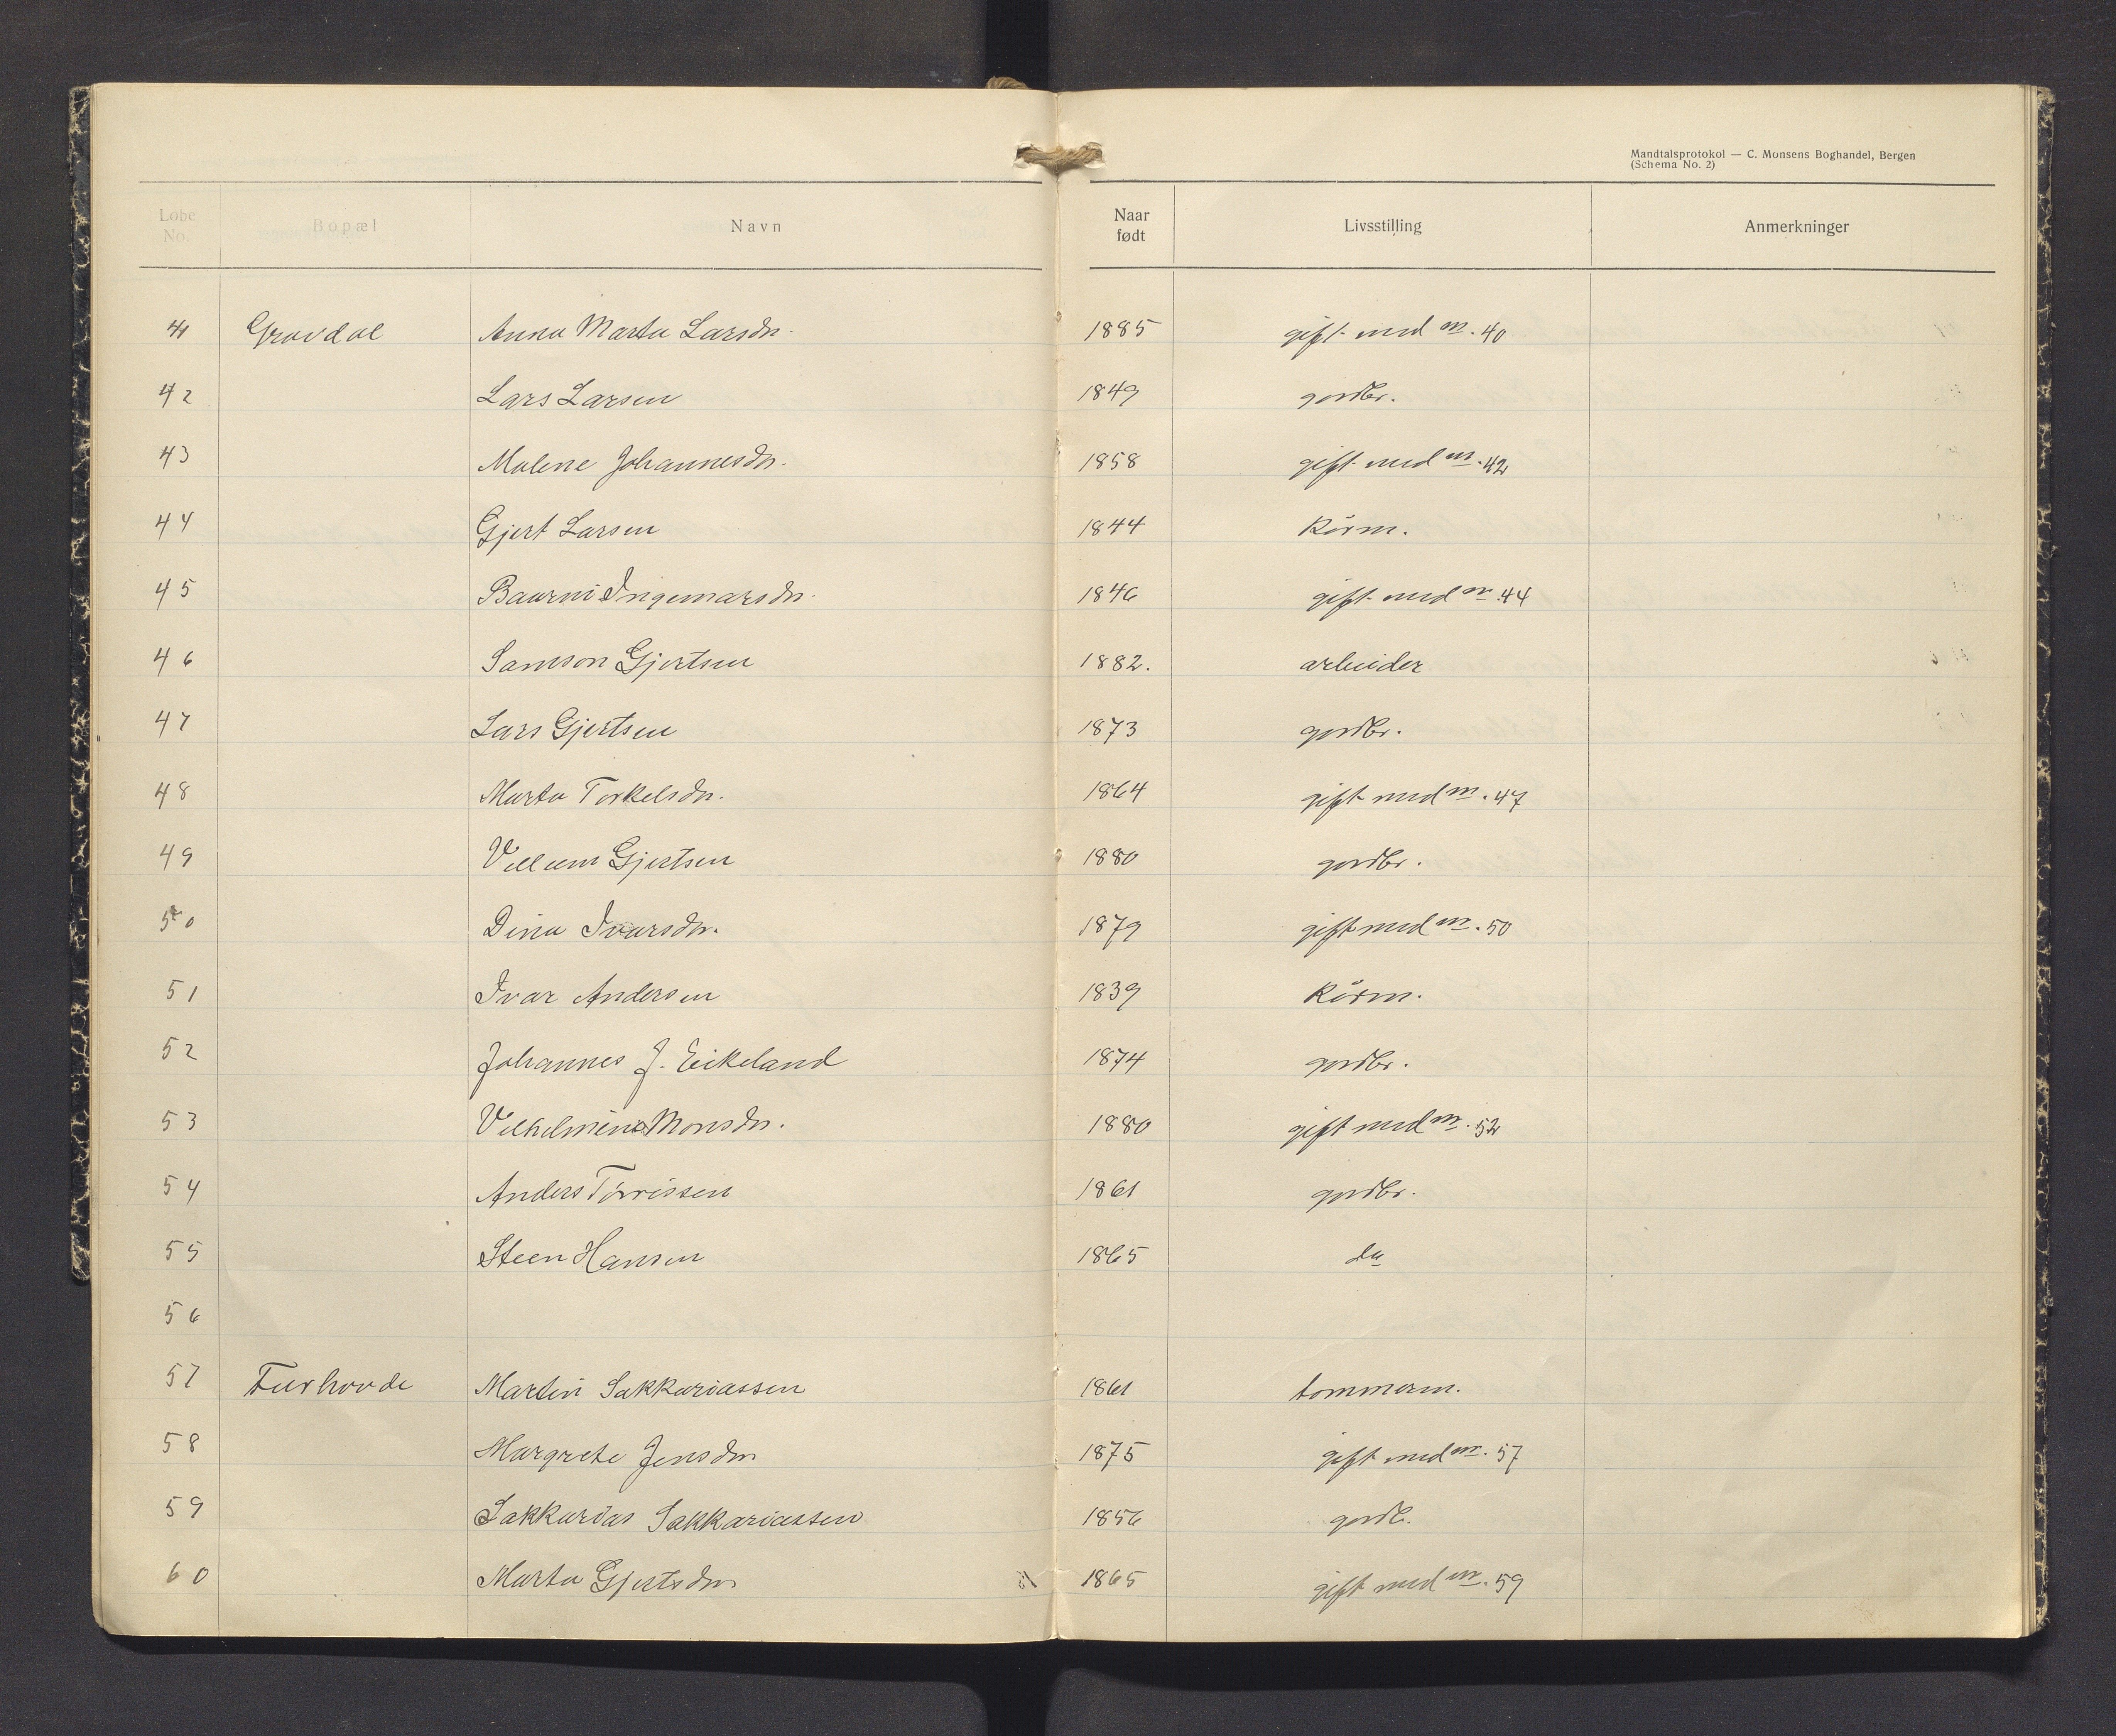 Mandtalsprotokol — C. Monsens Boghandel, Bergen
(Schema No. 2)
Løbe No. Bopæl Navn Naar født Livsstilling Anmerkninger
41 Gravdal Anna Marta Larsdr. 1885 gift med nr. 40
42 Lars Larsen 1849 gordbr.
43 Malene Johannesdr. 1858 gift med nr. 42
44 Gjert Larsen 1844 Kårm.
45 Ingemarsdr. 1846 gift med nr. 44
46 Samson Gjertsen 1882. arbeider
47 Lars Gjertsen 1873 gordbr.
48 Marta Torkelsdr. 1864 gift med nr. 47
49 Villum Gjertsen 1880 gordbr.
50 Dina Ivarsdr. 1879 gift med nr. 50
51 Ivar Andersen 1839 Kårm.
52 Johannes J. Eikeland 1874 gordbr.
53 Vilhelmine Monsdr. 1880 gift med nr. 52
54 Anders Tørrissen 1861 gordbr.
55 Steen Hansen 1865 do
56
57 Furhovde Martin Sakkariassen 1861 tømmerm.
58 Margrete Jensdr 1875 gift med nr. 57
59 Sakkarias Sakkariassen 1856 gordb.
60 Marta Gjertsdr 1865 gift med nr. 59